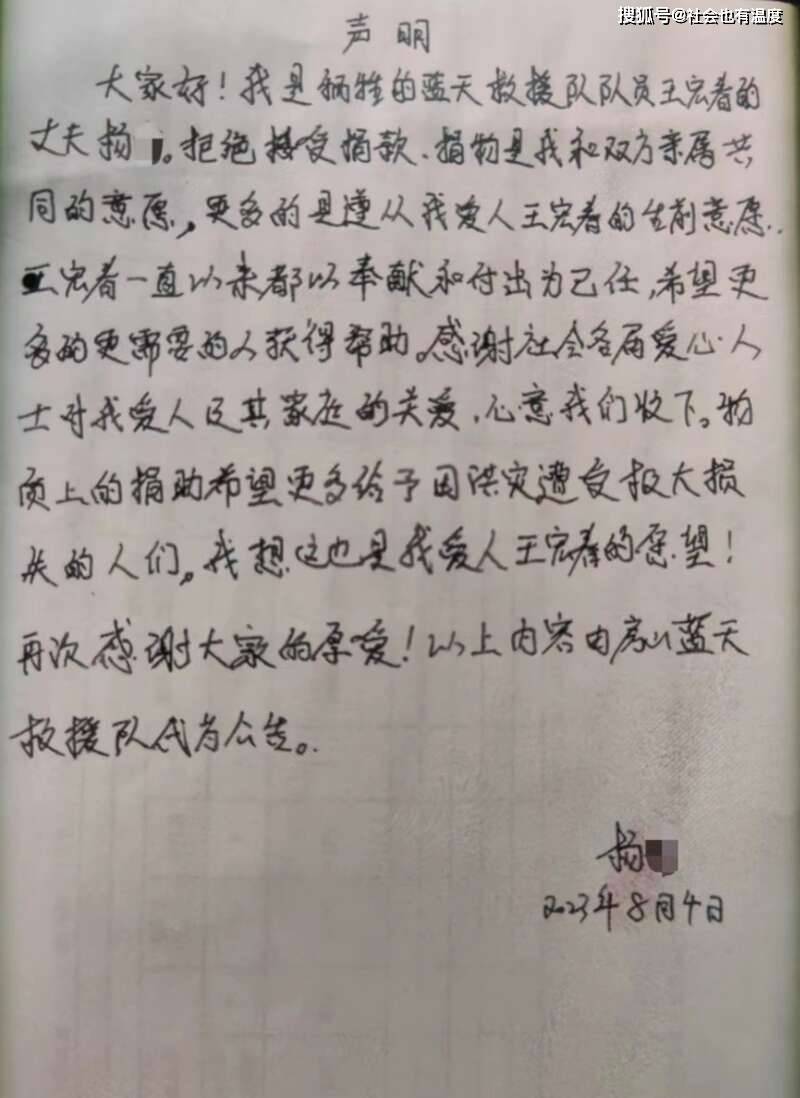 搜狐号@社会也有温度
声明
大家好！我是牺牲的蓝天救援队队员王宏春的
丈夫杨。拒绝接受捐款、捐物是我和双方亲属共
同的意愿，更多的是遵从我爱人王宏春的生前意愿.
王宏春一直以来都以奉献和付出为己任,希望更
多的更需要的人获得帮助。感谢社会各届爱心人
士对我爱人及其家庭的关爱，心意我们收下。物
质上的捐助希望更多给予因洪灾遭受极大损
失的人们。我想这也是我爱人王宏春的愿望！
再次感谢大家的厚爱！以上内容由房山蓝天
救援队代为公告。
杨
2023年8月4日